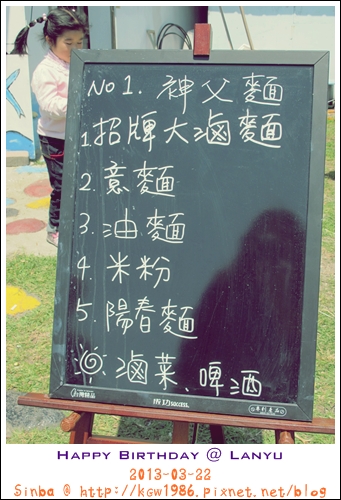 No 1. 神父麵
1. 招牌大滷麵
2. 意麵
3. 油麵
4. 米粉
5. 陽春麵
滷菜、啤酒
成功success.
Happy Birthday @ Lanyu
2013-03-22
Sinba @ http://kgw1986.pixnet.net/blog